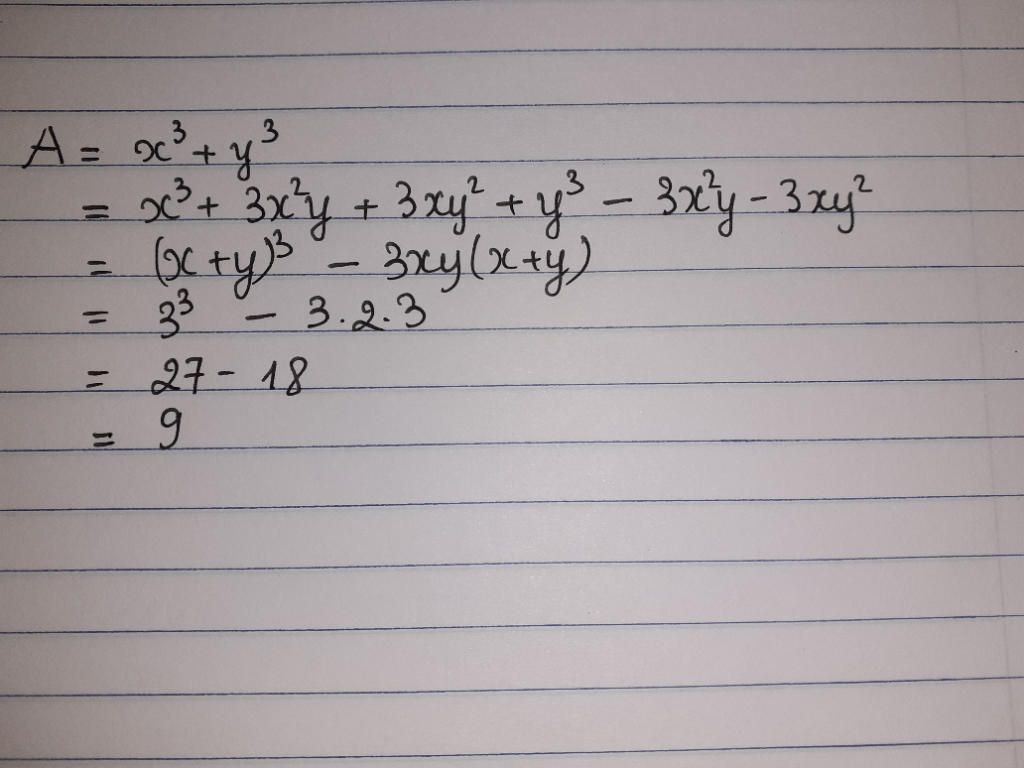 A = x³ + y³
= x³ + 3x²y + 3xy² + y³ - 3x²y - 3xy²
= (x + y)³ - 3xy(x+y)
= 3³ - 3.2.3
= 27 - 18
= 9